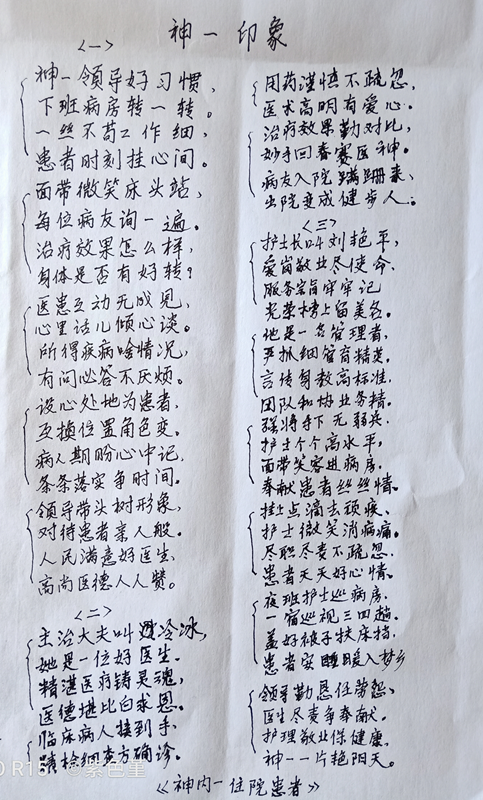 神一印象
<一>
神一领导好习惯，
下班病房转一转。
一丝不苟工作细，
患者时刻挂心间。
面带微笑床头站，
每位病友询一遍。
治疗效果怎么样，
身体是否有好转？
医患互动无成见，
心里话儿倾心谈。
所得疾病啥情况，
有问必答不厌烦。
设心处地为患者，
互换位置角色变。
病人期盼心中记，
条条落实争时间。
领导带头树形象，
对待患者亲人般。
人民满意好医生，
高尚医德人人赞。
<二>
主治大夫叫刘冷冰，
她是一位好医生。
精湛医疗铸灵魂，
医德堪比白求恩。
临床病人接到手，
精检细查方确诊。
用药谨慎不疏忽，
医术高明有爱心。
治疗效果勤对比，
妙手回春赛医神。
病友入院蹒跚来，
出院变成健步人。
<三>
护士长叫刘艳平，
爱岗敬业尽使命。
服务宗旨牢牢记
光荣榜上留美名。
她是一名管理者，
严抓细管育精英。
言传身教高标准，
团队和协业务精。
强将手下无弱兵，
护士个个高水平，
面带笑容进病房，
奉献患者丝丝情。
挂上点滴去顽疾，
护士微笑消病痛。
尽职尽责不疏忽，
患者天天好心情。
夜班护士巡病房，
一宿巡视三四趟。
盖好被子扶床档，
患者安暖入梦乡
领导勤恳任劳怨，
医生尽责争奉献。
护理敬业保健康，
神一一片艳阳天。
《神内一住院患者》